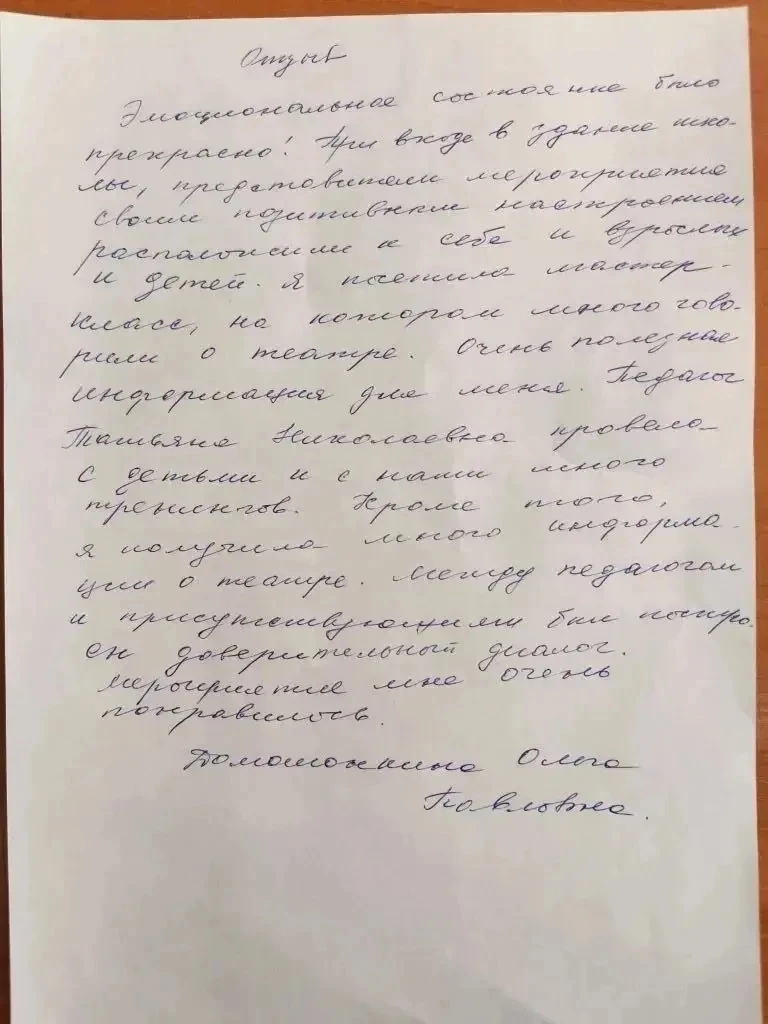 Отзыв
Эмоциональное состояние было
прекрасно! При входе в здание шко-
лы, представители мероприятия
своим позитивным настроением
расположили к себе и взрослых
и детей. Я посетила мастер-
класс, на котором много гово-
рили о театре. Очень полезная
информация для меня. Педагог
Татьяна Николаевна провела
с детьми и с нами много
тренингов. Кроме того,
я получила много информа-
ции о театре. Между педагогом
и присутствующими был постро-
ен доверительный диалог.
Мероприятие мне очень
понравилось.
Домашонкина Ольга
Павловна.